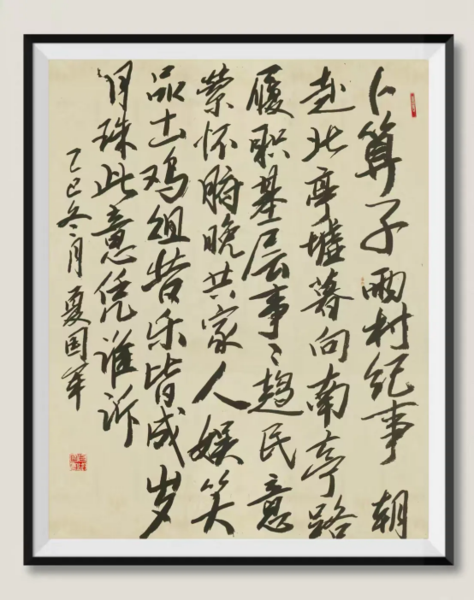 卜算子 两村纪事 朝
赴北亭墟暮向南亭路
履职基层事事趋民意
萦怀腑晚共家人娱笑
品土鸡俎苦乐皆成岁
月珠此意凭谁诉
乙巳冬月 夏国军